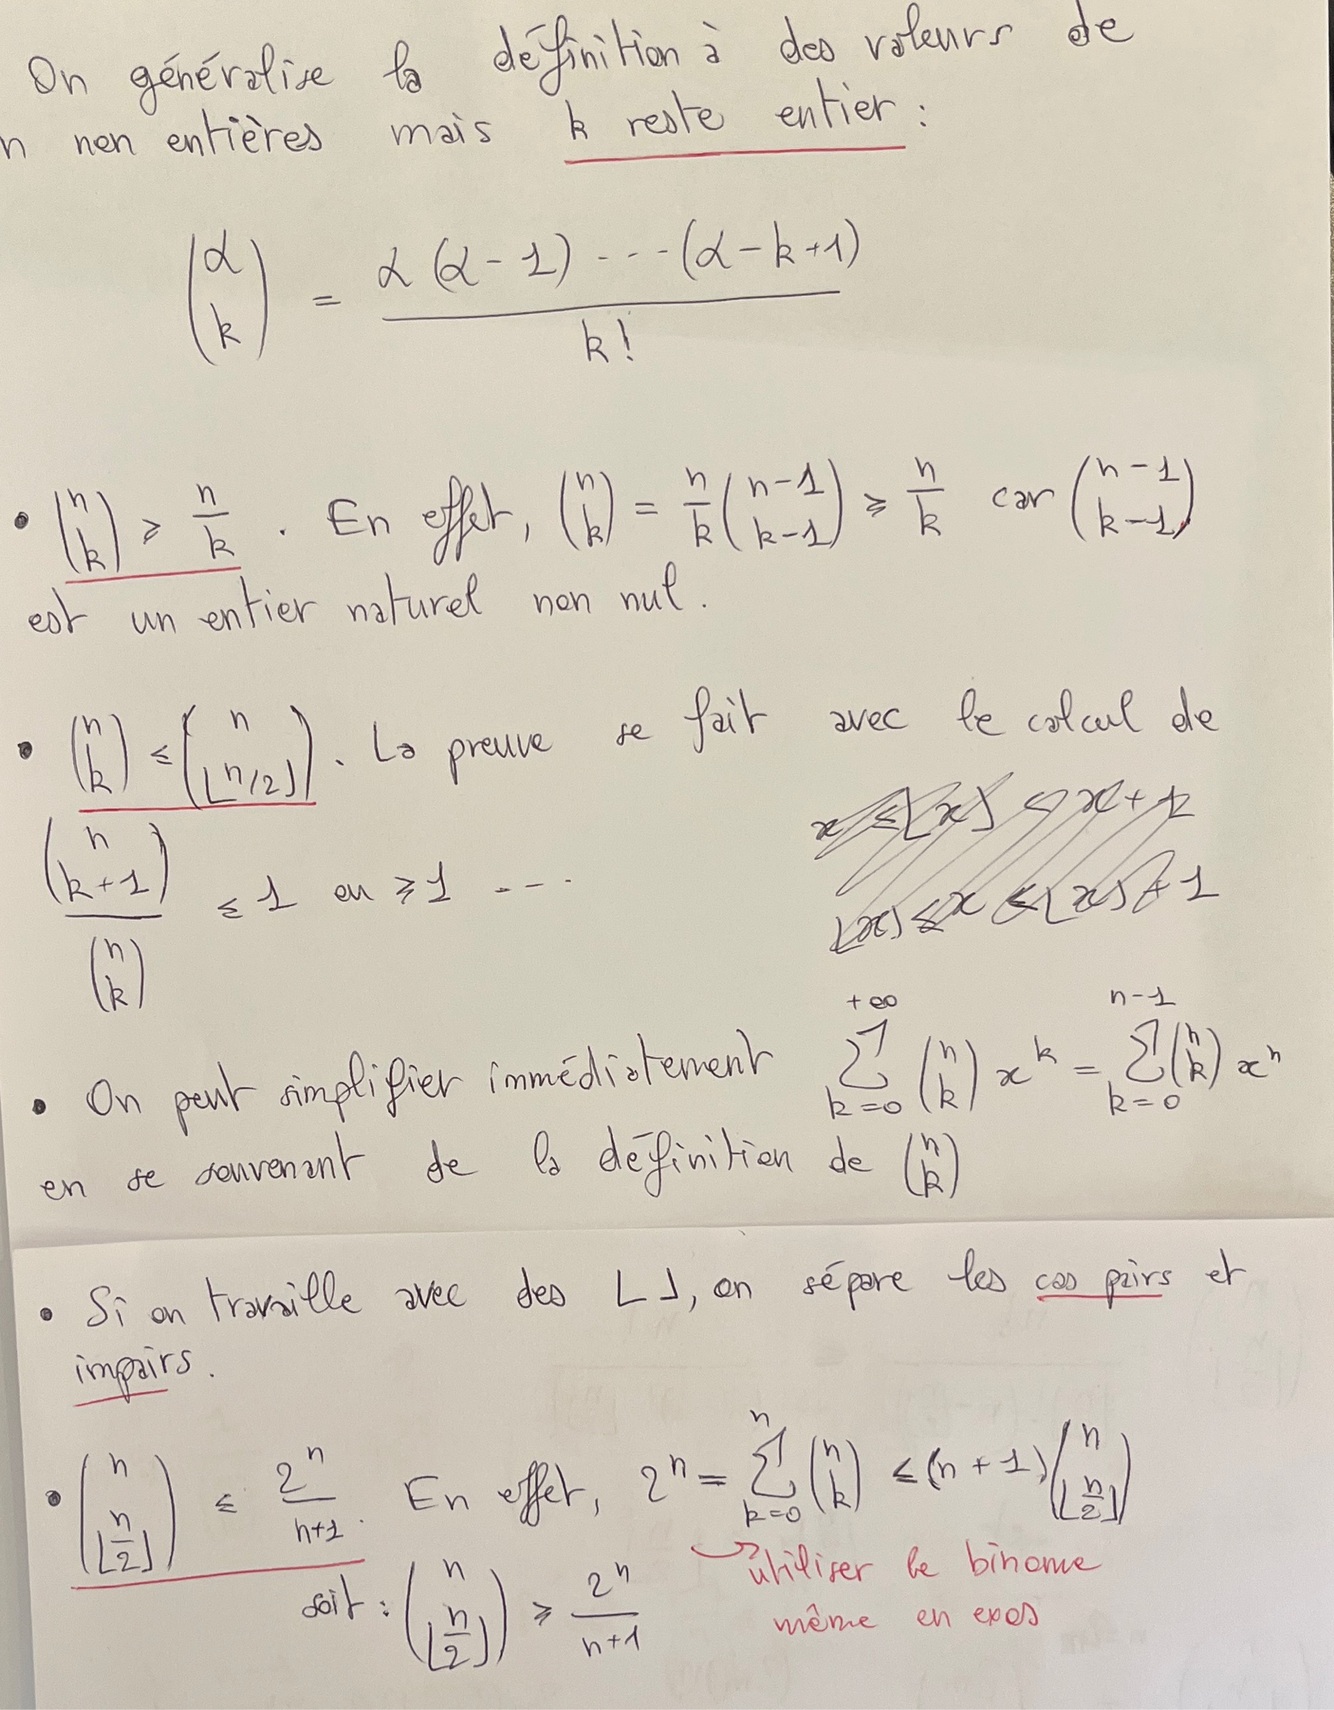 On généralise la définition à des valeurs de
n non entières mais k reste entier :
(α k) = α (α - 1) --- (α - k + 1) / k!
• (n k) ≥ n/k . En effet, (n k) = n/k (n-1 k-1) ≥ n/k car (n-1 k-1)
est un entier naturel non nul.
• (n k) ≤ (n ⌊n/2⌋). La preuve se fait avec le calcul de
(n k+1) / (n k) ≤ 1 ou ≥ 1 ---
x ≤ ⌊x⌋ ≤ x + 1
⌊x⌋ ≤ x ≤ ⌊x⌋ + 1
• On peut simplifier immédiatement ∑_{k=0}^{+∞} (n k) x^k = ∑_{k=0}^{n-1} (n k) x^n
en se souvenant de la définition de (n k)
• Si on travaille avec des ⌊ ⌋, on sépare les cas pairs et
impairs.
• (n ⌊n/2⌋) ≤ 2^n / n+1 . En effet, 2^n = ∑_{k=0}^{n} (n k) ≤ (n + 1) (n ⌊n/2⌋)
soit : (n ⌊n/2⌋) ≥ 2^n / n+1
utiliser le binome
même en exos